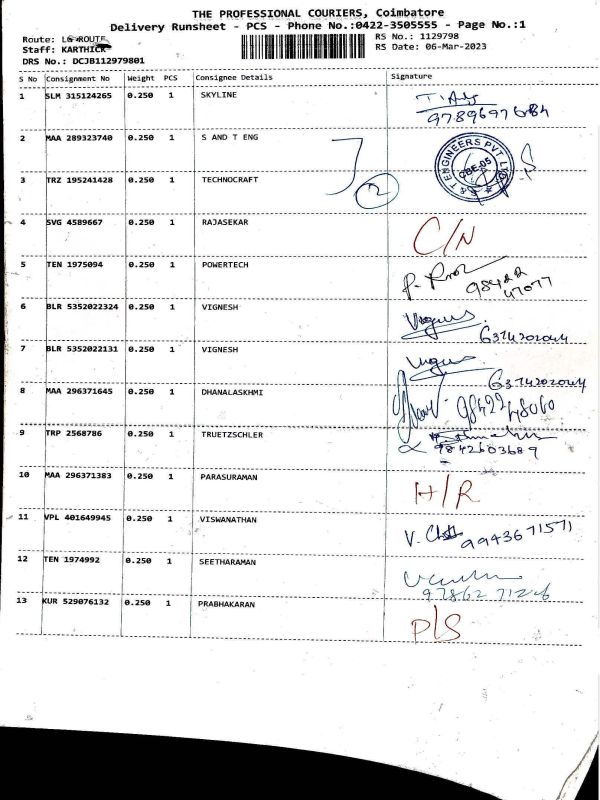 THE PROFESSIONAL COURIERS, Coimbatore
Delivery Runsheet - PCS - Phone No.:0422-3505555 - Page No.:1
Route: LG-ROUTE
Staff: KARTHICK
DRS No.: DCJB112979801
RS No.: 1129798
RS Date: 06-Mar-2023
S No Consignment No Weight PCS Consignee Details Signature
1 SLM 315124265 0.250 1 SKYLINE
2 MAA 289323740 0.250 1 S AND T ENG
S & T ENGINEERS PVT LTD
CBE-05
3 TRZ 195241428 0.250 1 TECHNOCRAFT
2
4 SVG 4589667 0.250 1 RAJASEKAR C/N
5 TEN 1975094 0.250 1 POWERTECH
98422
47077
6 BLR 5352022324 0.250 1 VIGNESH Vignes
6374202044
7 BLR 5352022131 0.250 1 VIGNESH Vignes
6374202044
8 MAA 296371645 0.250 1 DHANALASKHMI 98422 48060
9 TRP 2568786 0.250 1 TRUETZSCHLER
9842603689
10 MAA 296371383 0.250 1 PARASURAMAN H/R
11 VPL 401649945 0.250 1 VISWANATHAN 9943671571
12 TEN 1974992 0.250 1 SEETHARAMAN
13 KUR 529076132 0.250 1 PRABHAKARAN
P/S